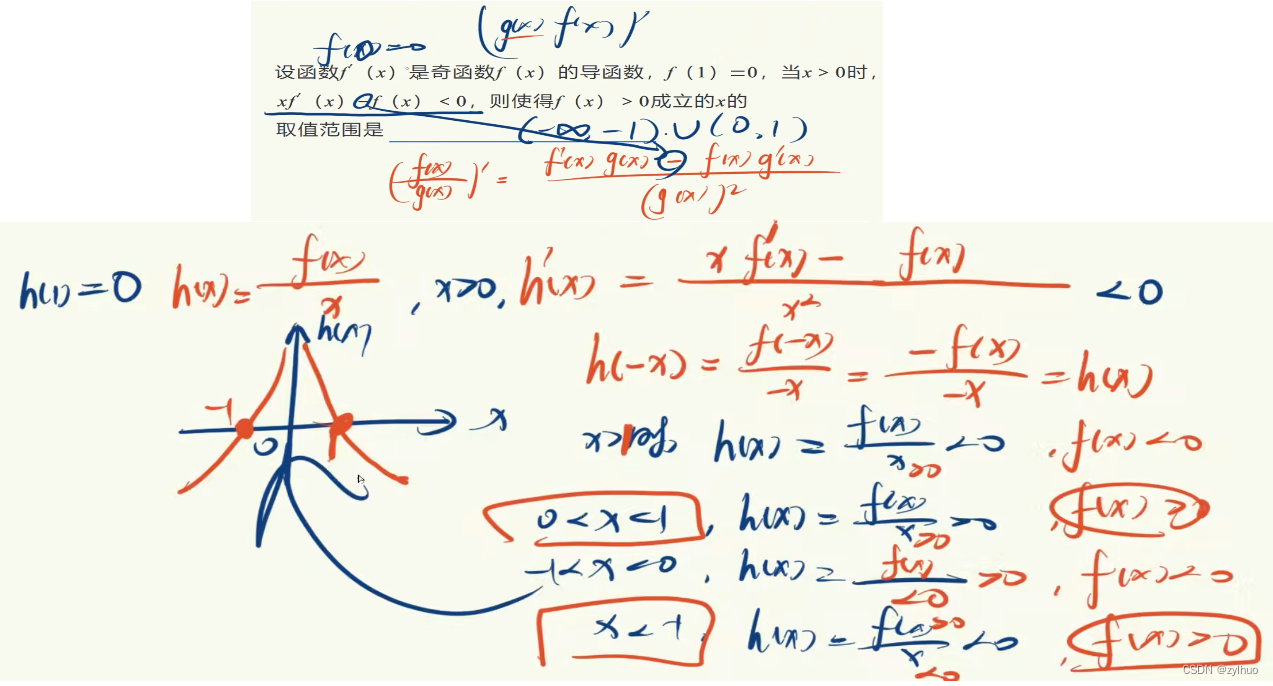 f(0)=0 (g(x) f(x))'
设函数f′（x）是奇函数f（x）的导函数，f（1）=0，当x＞0时，
xf′（x）-f（x）＜0，则使得f（x）＞0成立的x的
取值范围是 (-∞, -1)∪(0,1)
(f(x)/g(x))' = (f'(x) g(x) - f(x) g'(x))/(g(x))²
h(1)=0 h(x)=f(x)/x , x>0, h'(x) = (x f'(x) - f(x))/x² <0
h(x)
h(-x) = f(-x)/-x = -f(x)/-x = h(x)
-1 0 1 x
h(x) = f(x)/x <0 , f(x)<0
>0
0<x<1, h(x) = f(x)/x >0
>0
-1<x<0, h(x) = f(x)/<0 >0 , f(x)<0
x<-1, h(x) = f(x)/x <0 , f(x)>0
>0
<0
CSDN @zylhuo